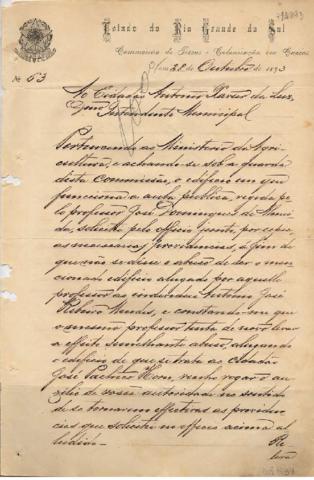 Estado do Rio Grande do Sul
Commissão de Terras e Colonisação em Caxias
Em 28 de Outubro de 1893
Nº 53
Ao Cidadão Antonio Xavier da Luz,
Intendente Municipal
Pertencendo ao Ministerio da Agri-
cultura, e achando-se sob a guarda
desta Commissão, o edificio em que
funcciona a aula publica, regida pe-
lo professor José Domingues de
solicitei pelo officio junto, por copia,
as necessarias providencias, a fim de
que não se désse o abuso de ser o men-
cionado edificio alugado por aquelle
professor ao individuo Antonio José
Ribeiro Mendes, e constando-me que
o mesmo professor tenta de novo levar
a effeito semelhante abuso, alugando
o edificio de que se trata ao cidadão
José venho rogar o au-
xilio de vossa autoridade no sentido
de se tornarem effectivas as providen-
cias que solicitei no officio acima al-
ludido.